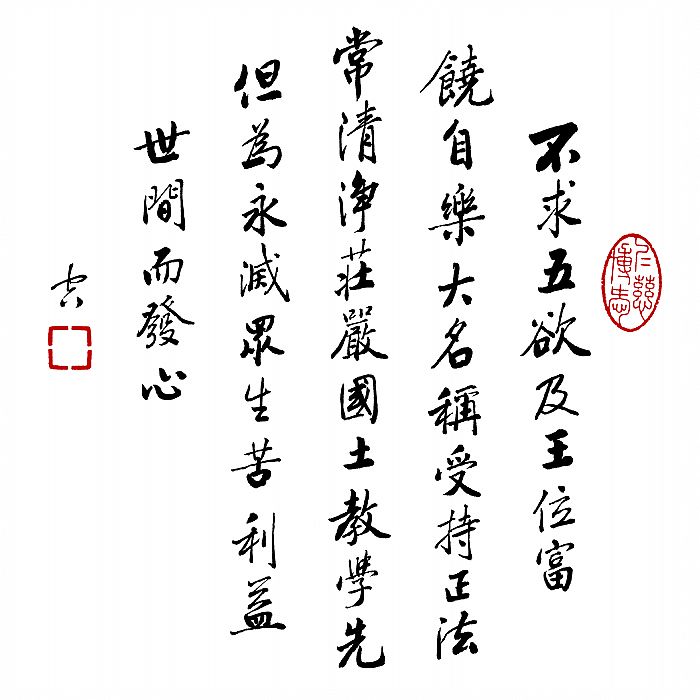 不求五欲及王位富
饒自樂大名稱受持正法
常清淨莊嚴國土教學先
但為永滅眾生苦利益
世間而發心